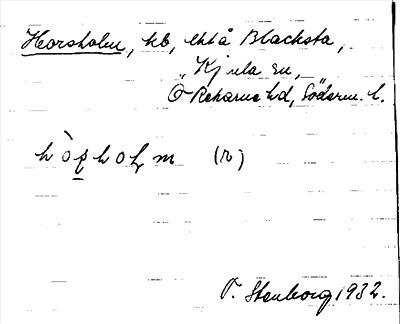 Horsholm, hb, Ekhå Blacksta,
Kjula sn,
Ö Rekarne hd, Söderm. l.
(n)
O. Stenborg 1932.